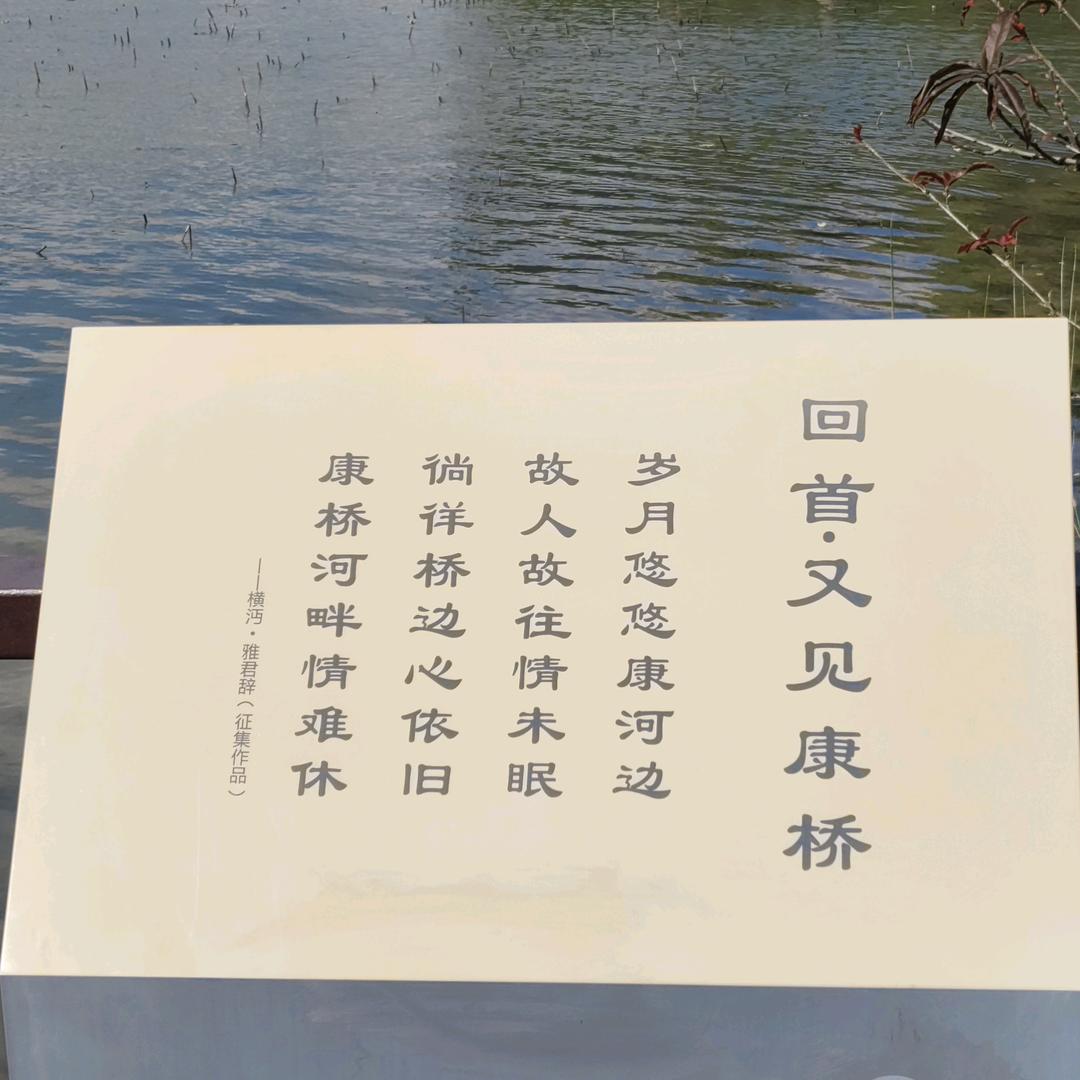 回首·又见康桥
岁月悠悠康河边
故人故往情未眠
徜徉桥边心依旧
康桥河畔情难休
——横沔·雅君辞（征集作品）